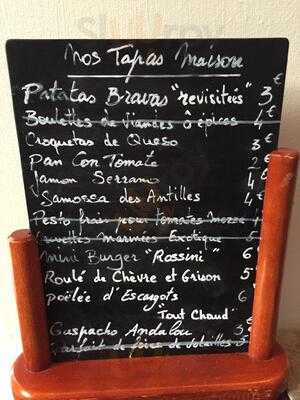 Nos Tapas Maison
€
Patatas Bravas "revisitées" 3
Boulettes de viandes à épices 4
Croquetas de Queso 3
Pan Con Tomate 2
Jamon Serrano 4
Samossa des Antilles 4
Pesto frais pour tomates
marinées Exotique
Mini Burger "Rossini" 6
Roulé de Chèvre et Grison 5
Poêlée d'Escargots 6
"Tout Chaud"
Guspacho Andalou 3
Parfait de foies de volailles 3